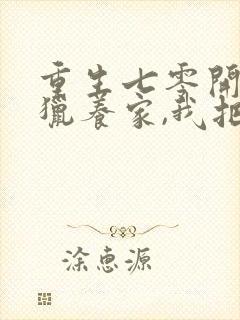 重生七零開
獵養家,我把
涂惠源